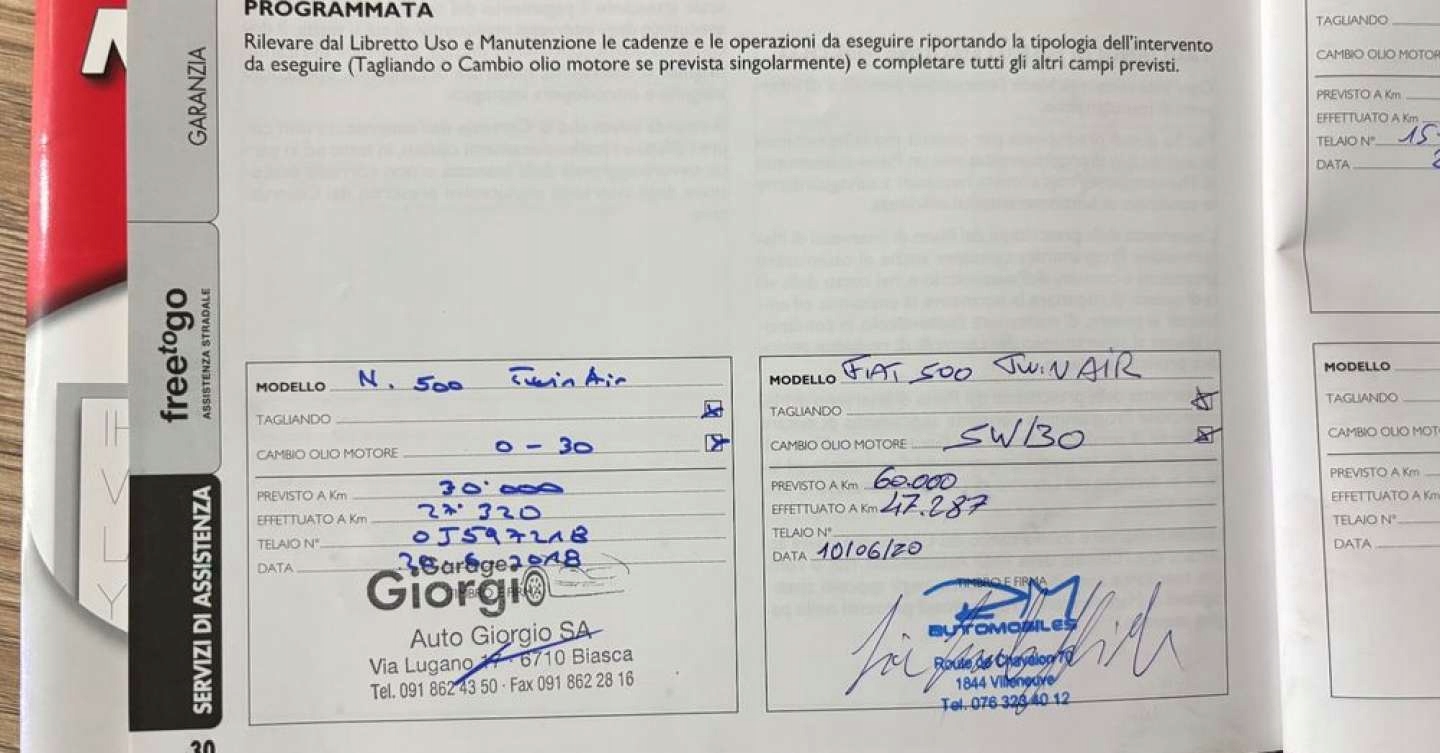 PROGRAMMATA
Rilevare dal Libretto Uso e Manutenzione le cadenze e le operazioni da eseguire riportando la tipologia dell'intervento
da eseguire (Tagliando o Cambio olio motore se prevista singolarmente) e completare tutti gli altri campi previsti.
GARANZIA
freetogo
ASSISTENZA STRADALE
SERVIZI DI ASSISTENZA
30
MODELLO N. 500 Twin Air
TAGLIANDO
CAMBIO OLIO MOTORE 0-30
PREVISTO A Km 30.000
EFFETTUATO A Km 27.320
TELAIO N° 0J597218
DATA 2018
TIMBRO E FIRMA
Garage
Giorgio
Auto Giorgio SA
Via Lugano 17 · 6710 Biasca
Tel. 091 862 43 50 · Fax 091 862 28 16
MODELLO FIAT 500 TWIN AIR
TAGLIANDO
CAMBIO OLIO MOTORE 5W/30
PREVISTO A Km 60.000
EFFETTUATO A Km 47.287
TELAIO N°
DATA 10/06/20
TIMBRO E FIRMA
AUTOMOBILES
Route de Chavalon 70
1844 Villeneuve
Tel. 076 328 40 12
TAGLIANDO
CAMBIO OLIO MOTOR
PREVISTO A Km
EFFETTUATO A Km
TELAIO N° 15
DATA
MODELLO
TAGLIANDO
CAMBIO OLIO MOT
PREVISTO A Km
EFFETTUATO A Km
TELAIO N°
DATA